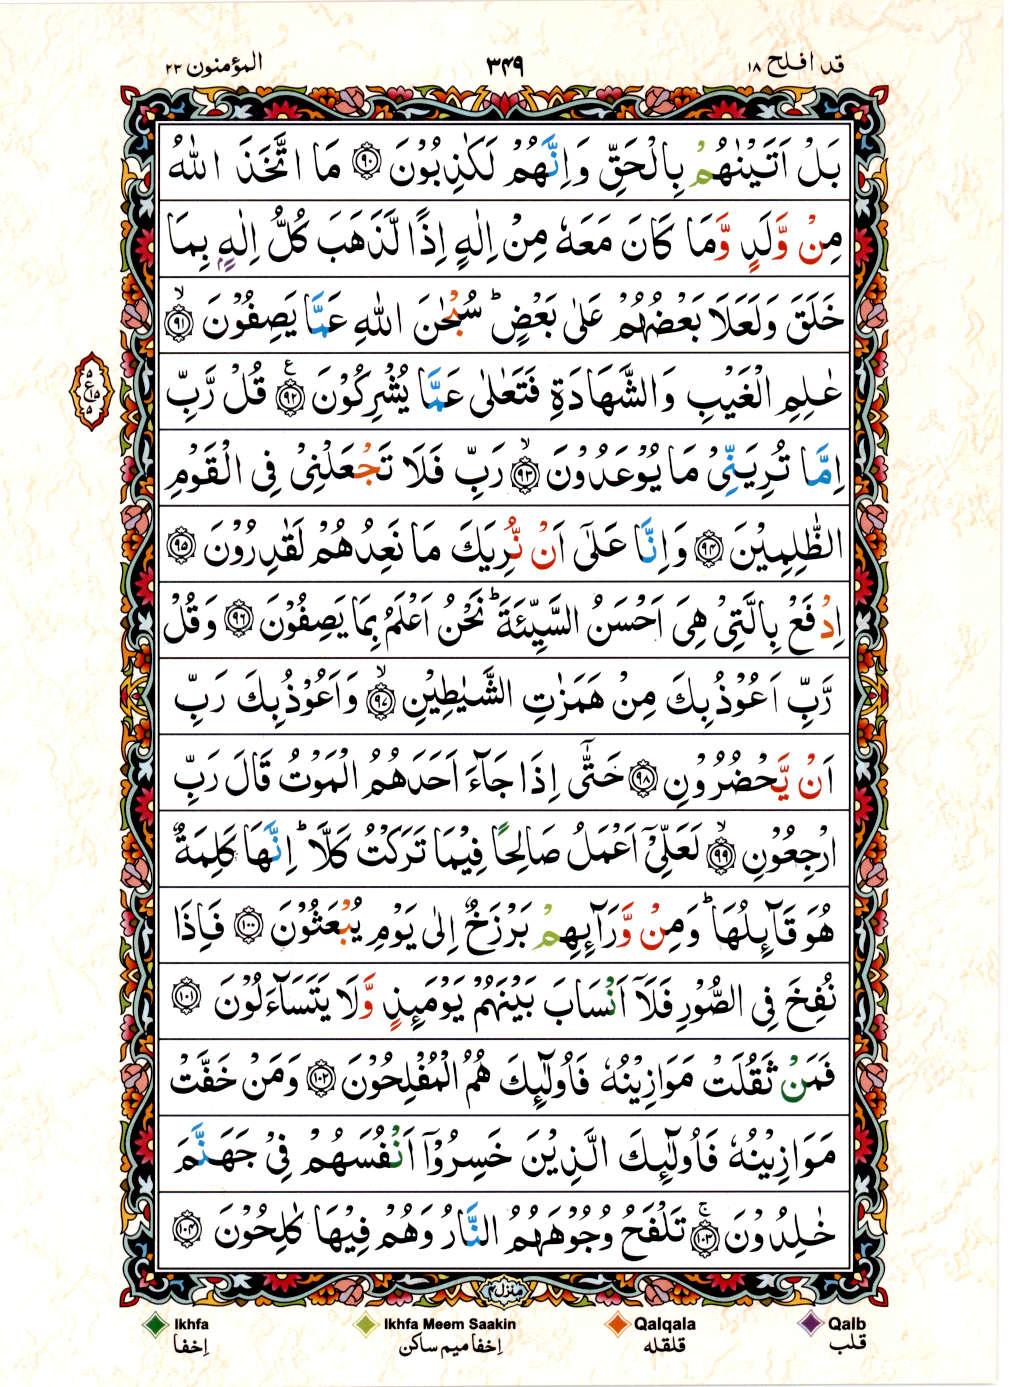 المؤمنون ٢٣ ٣٤٩ قد افلح ١٨
بَلْ اَتَيْنٰهُمْ بِالْحَقِّ وَاِنَّهُمْ لَكٰذِبُوْنَ ﴿٩٠﴾ مَا اتَّخَذَ اللّٰهُ
مِنْ وَّلَدٍ وَّمَا كَانَ مَعَهٗ مِنْ اِلٰهٍ اِذًا لَّذَهَبَ كُلُّ اِلٰهٍۭ بِمَا
خَلَقَ وَلَعَلَا بَعْضُهُمْ عَلٰى بَعْضٍ ؕ سُبْحٰنَ اللّٰهِ عَمَّا يَصِفُوْنَ ﴿٩١﴾ۙ
عٰلِمِ الْغَيْبِ وَالشَّهَادَةِ فَتَعٰلٰى عَمَّا يُشْرِكُوْنَ ﴿٩٢﴾ۧ قُلْ رَّبِّ
اِمَّا تُرِيَنِّيْ مَا يُوْعَدُوْنَ ﴿٩٣﴾ۙ رَبِّ فَلَا تَجْعَلْنِيْ فِى الْقَوْمِ
الظّٰلِمِيْنَ ﴿٩٤﴾ وَاِنَّا عَلٰٓى اَنْ نُّرِيَكَ مَا نَعِدُهُمْ لَقٰدِرُوْنَ ﴿٩٥﴾
اِدْفَعْ بِالَّتِيْ هِيَ اَحْسَنُ السَّيِّئَةَ ؕ نَحْنُ اَعْلَمُ بِمَا يَصِفُوْنَ ﴿٩٦﴾ وَقُلْ
رَّبِّ اَعُوْذُ بِكَ مِنْ هَمَزٰتِ الشَّيٰطِيْنِ ﴿٩٧﴾ۙ وَاَعُوْذُ بِكَ رَبِّ
اَنْ يَّحْضُرُوْنِ ﴿٩٨﴾ حَتّٰٓى اِذَا جَآءَ اَحَدَهُمُ الْمَوْتُ قَالَ رَبِّ
ارْجِعُوْنِ ﴿٩٩﴾ۙ لَعَلِّيْٓ اَعْمَلُ صَالِحًا فِيْمَا تَرَكْتُ كَلَّا ؕ اِنَّهَا كَلِمَةٌ
هُوَ قَآئِلُهَا ؕ وَمِنْ وَّرَآئِهِمْ بَرْزَخٌ اِلٰى يَوْمِ يُبْعَثُوْنَ ﴿١٠٠﴾ فَاِذَا
نُفِخَ فِى الصُّوْرِ فَلَآ اَنْسَابَ بَيْنَهُمْ يَوْمَئِذٍ وَّلَا يَتَسَآءَلُوْنَ ﴿١٠١﴾
فَمَنْ ثَقُلَتْ مَوَازِيْنُهٗ فَاُولٰٓئِكَ هُمُ الْمُفْلِحُوْنَ ﴿١٠٢﴾ وَمَنْ خَفَّتْ
مَوَازِيْنُهٗ فَاُولٰٓئِكَ الَّذِيْنَ خَسِرُوْٓا اَنْفُسَهُمْ فِيْ جَهَنَّمَ
خٰلِدُوْنَ ﴿١٠٣﴾ۚ تَلْفَحُ وُجُوْهَهُمُ النَّارُ وَهُمْ فِيْهَا كٰلِحُوْنَ ﴿١٠٤﴾
منزل ٤
Ikhfa Ikhfa Meem Saakin Qalqala Qalb
إخفا إخفا ميم ساكن قلقله قلب